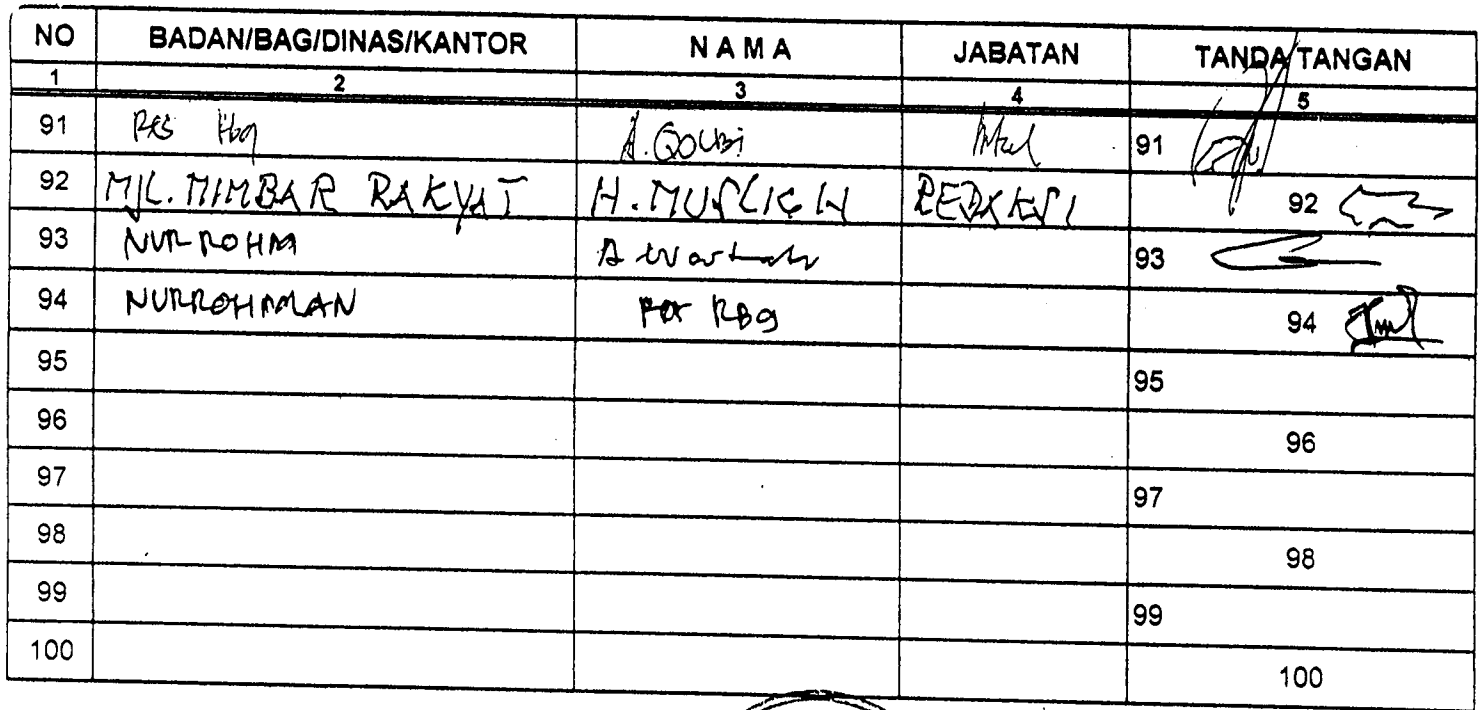 NO BADAN/BAG/DINAS/KANTOR N A M A JABATAN TANDA TANGAN
1 2 3 4 5
91 Res A. QOUBI 91
92 MJL. MIMBAR RAKYAT H. MUSLICH REDAKSI 92
93 NURROHM 93
94 NURROHMAN RBg 94
95 95
96 96
97 97
98 98
99 99
100 100